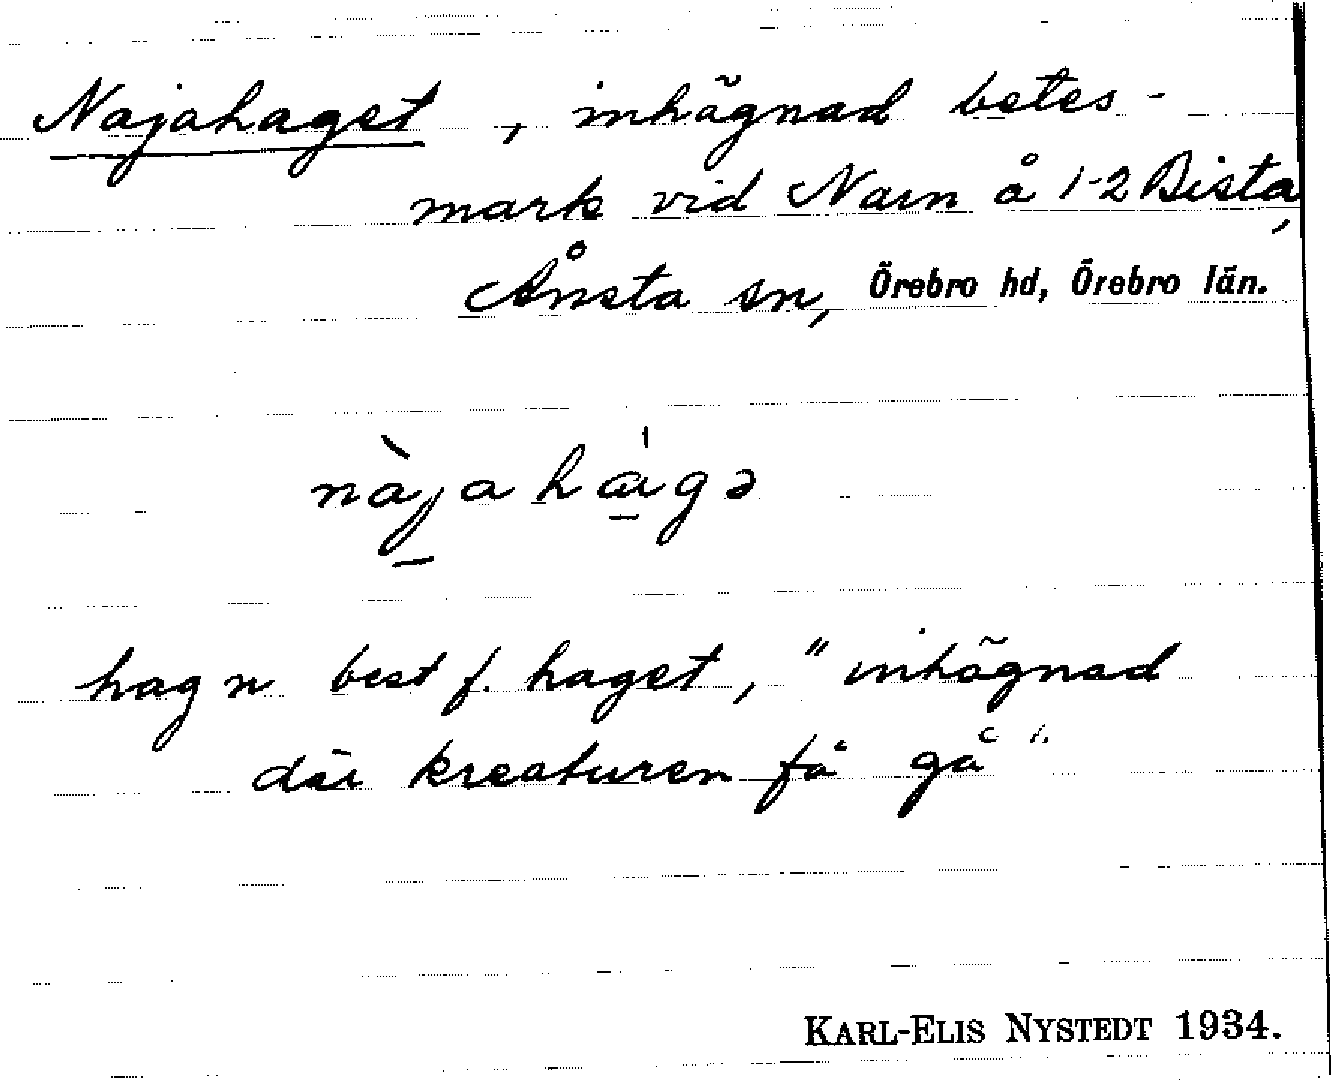 Najahaget, inhägnad betes-
mark vid Narn å 1-2 Bista,
Ånsta sn, Örebro hd, Örebro län.
nàjahágə
hag n best f. haget, "inhägnad
där kreaturen få gå".
KARL-ELIS NYSTEDT 1934.